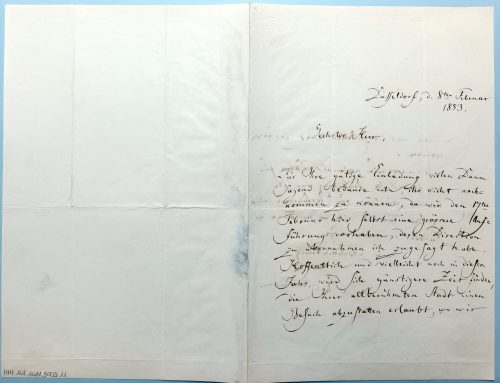 Düsseldorf, d. 8ten Februar
1853.
Geehrter Herr,
Für Ihre gütige Einladung vielen Dank
sagend, bedaure ich ihr nicht nach-
kommen zu können, da wir den 17ten
Februar hier selbst eine grössere Auf-
führung vorhaben, deren Direction
zu übernehmen ich zugesagt habe.
Hoffentlich und vielleicht noch in diesem
Jahr, wird sich günstigere Zeit finden,
die Ihrer altberühmten Stadt einen
Besuch abzustatten erlaubt, wo wir